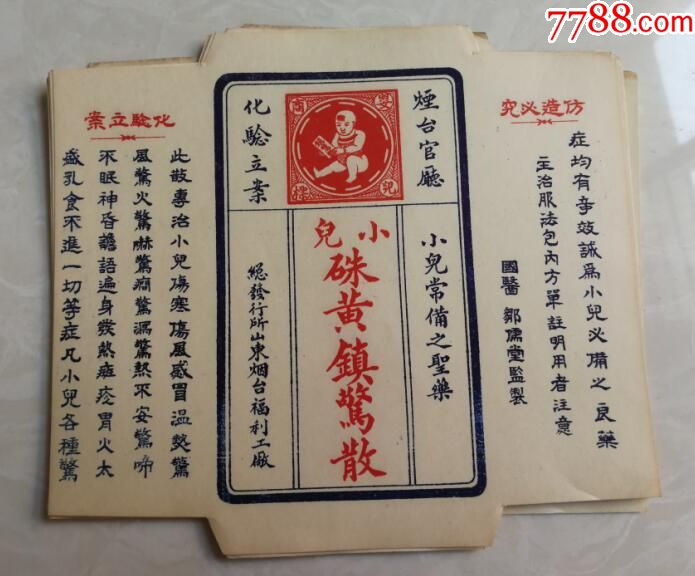 7788.com
仿造必究
症均有奇效誠爲小兒必備之良藥
主治服法包內方單註明用者注意
國醫鄒儒堂監製
煙台官廳
嬰兒
商標
化驗立案
小兒常備之聖藥
小兒
硃黃鎮驚散
總發行所山東烟台福利工廠
化驗立案
此散專治小兒傷寒傷風感冒溫熱驚
風驚火驚嚇驚癇驚漏驚熱不安驚啼
不眠神昏譫語遍身發熱疹胃火太
盛乳食不進一切等症凡小兒各種驚